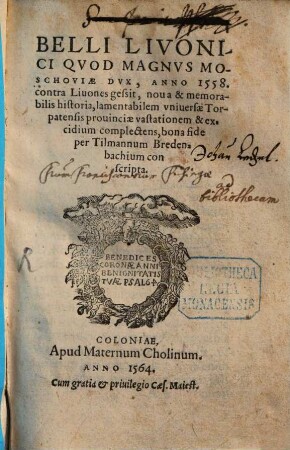 BELLI LIVONI-
CI QVOD MAGNVS MO-
SCHOVIÆ DVX, ANNO 1558.
contra Liuones gessit, noua & memora-
bilis historia, lamentabilem vniuersæ Tor-
patensis prouinciæ vastationem & ex-
cidium complectens, bona fide
per Tilmannum Breden-
bachium con
scripta.
bibliothecam
BENEDICES
CORONÆ ANNI
BENIGNITATIS
TVÆ PSAL 64
BIBLIOTHECA
REGIA
MONACENSIS
R
COLONIAE,
Apud Maternum Cholinum.
ANNO 1564.
Cum gratia & priuilegio Cæs. Maiest.